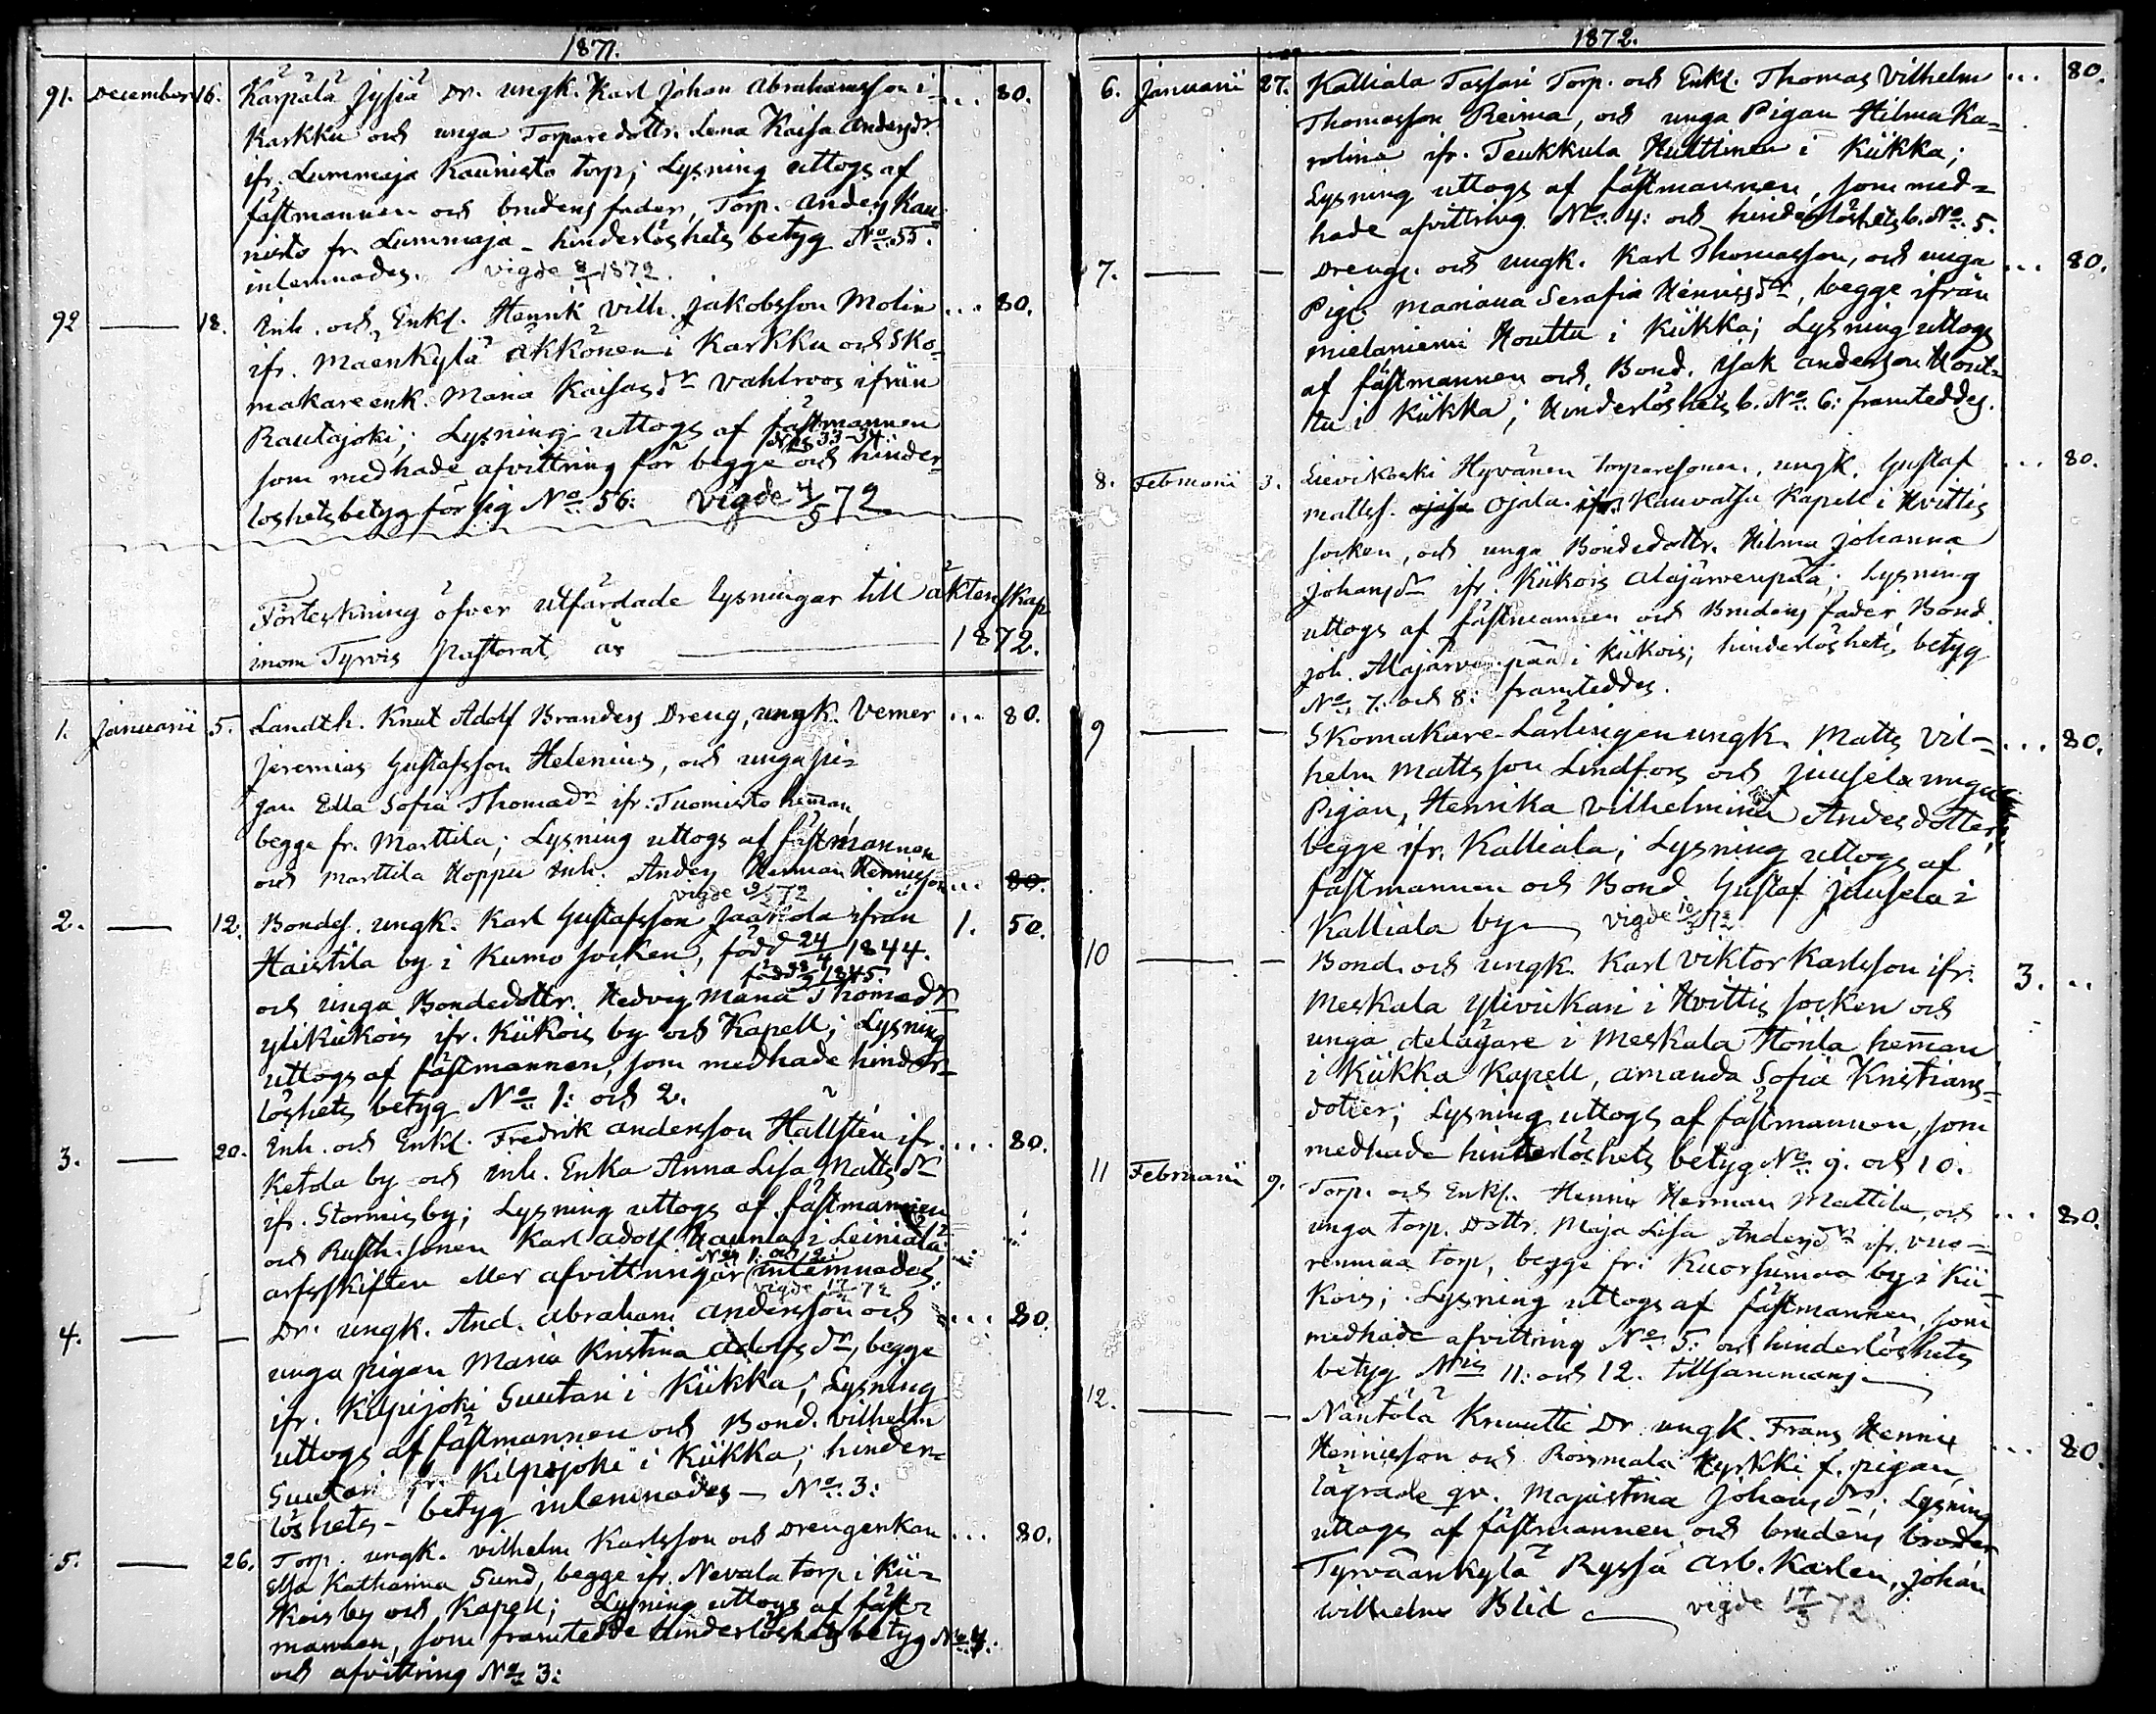 1871.
91. December 16. Karpälä Jysiä Dr. ungk. Karl Johan Abrahamsson i ... 80.
Karkku och unga Torparedottr. Lena Kaisa Andersdr
ifr. Lummaja Kaunisto torp; Lysning uttogs af
fästmannen och brudens fader, Torp. Anders Kau-
nisto fr. Lummaja - hinderlöshets betyg No. 55.
inlemnades. vigde 8/1 1872.
92 — 18. Inh. och Enkl. Henrik Vilh. Jakobsson Molin ... 80.
ifr. Mäenkylä Äkkönen i Karkku och Sko-
makareenk. Maria Kaisa dr Vahlroos ifrån
Rautajoki; Lysning uttogs af fästmannen
NNs 33-34.
som medhade afvittring för begge och hinder-
löshetsbetyg för sig No. 56: vigde 4/5 72
Förteckning öfver utfärdade Lysningar till äktenskap
inom Tyrvis Pastorat år — 1872.
1. Januarii 5. Landth. Knut Adolf Branders Dreng, ungk. Verner ... 80.
Jeremias Gustafsson Helenius, och unga pi-
gan Edla Sofia Thomadr ifr. Tuomisto heman,
begge fr. Marttila; Lysning uttogs af fästmannen
och Marttila Hoppu Inh. Anders Herman Henricsson ... 80.
vigde 9/2 72
2. — 12. Bondes. ungk. Karl Gustafsson Jaakola ifrån 1. 50.
Haistila by i Kumo socken, född 24/4 1844.
född 1845.
och unga Bondedottr. Hedvig Maria Thomadr
Ylikiikois ifr. Kiikois by och Kapell; Lysning
uttogs af fästmannen, som medhade hinder-
löshets betyg No. 1: och 2.
3. — 20. Inh. och Enkl. Fredrik Andersson Hällsten ifr. ... 80.
Ketola by och inh. Enka Anna Lisa Matts dr
ifr. Stormisby; Lysning uttogs af fästmannen
och Rusth. sonen Karl Adolf Hannu i Leiniälä
Nis 1. och 2:
arfsskiften eller afvittringar inlemnades.
vigde 17/3 72
4. — — Dr. ungk. And. Abraham Andersson och ... 80.
unga pigan Maria Kristina Adolfs dr, begge
ifr. Kilpijoki Suutari i Kiikka; Lysning
uttogs af fästmannen och Bond. Vilhelm
Suutari fr. Kilpijoki i Kiikka; hinder-
löshets - betyg inlemnades — No. 3:
5. — 26. Torp. ungk. Vilhelm Karlsson och Drengenkan ... 80.
Elsa Katharina Sund, begge ifr. Nevala torp i Kii-
kois by och Kapell; Lysning uttogs af fäst-
mannen, som framtedde hinderlöshets betyg No. 4.
och afvittring No. 3:
1872.
6. Januarii 27. Kalliala Tassari Torp. och Enkl. Thomas Vilhelm ... 80.
Thomasson Reima, och unga Pigan Hilma Ka-
rolina ifr. Teukkula Huttinen i Kiikka;
Lysning uttogs af fästmannen, som med-
hade afvittring No. 4: och hinderlöshets b. No. 5.
7. — — Drengs. och ungk. Karl Thomasson, och unga ... 80.
Pig. Mariana Serafia Henrics dr, begge ifrån
Mielaniemi Houttu i Kiikka; Lysning uttogs
af fästmannen och Bond. Isak Andersson Hout-
tu i Kiikka; Hinderlöshets b. No. 6: framteddes.
8. Februarii 3. Lievikoski Hyvänen torparesonen, ungk. Gustaf ... 80.
Mattss. Ojala ifr. Kauvatsa Kapell i Hvittis
socken, och unga Bondedottr. Hilma Johanna
Johans dr ifr. Kiikois Alajärvenpää; Lysning
uttogs af fästmannen och Brudens fader, Bond.
Joh. Alajärvenpää i Kiikois; hinderlöshets betyg
No. 7. och 8: framteddes.
9 — — Skomakare-Lärlingen ungk. Matts Vil- ... 80.
helm Mattsson Lindfors och Juusela unga
Pigan, Henrika Vilhelmina Andersdotter,
begge ifr. Kalliala; Lysning uttogs af
fästmannen och Bond Gustaf Juusela i
Kalliala by — vigde 10/3 72
10 — — Bond. och ungk. Karl Viktor Karlsson ifr. 3. ..
Meskala Ylivikari i Hvittis socken och
unga delägare i Meskala Hönla heman
i Kiikka Kapell, Amanda Sofia Kristians-
dotter; Lysning uttogs af fästmannen, som
medhade hinderlöshets betyg No. 9. och 10.
11 Februarii 9. Torp. och Enkl. Henrik Herman Mattila, och ... 80.
unga torp. dottr. Maja Lisa Anders dr ifr. Vuo-
renmaa torp, begge fr. Kuorsumaa by i Kii-
kois; Lysning uttogs af fästmannen, som
medhade afvittring No. 5: och hinderlöshets
betyg Nris 11: och 12. tillsammans.
12. — — Näntölä Knuutti Dr ungk. Frans Henric ... 80.
Henricsson och Roismala Hyrkki f. pigan,
lägrade qv. Majastina Johans dr; Lysning
uttogs af fästmannen och brudens broder
Tyrväänkylä Ryssä arb. Karlen, Johan
Wilhelm Blid — vigde 17/3 72.